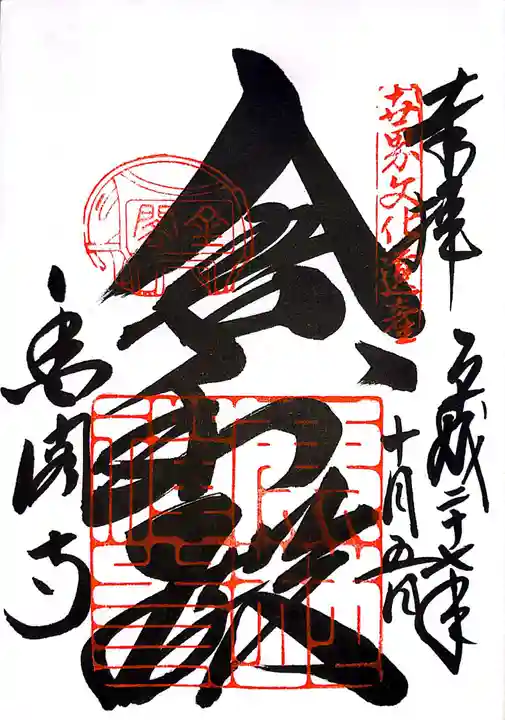 奉拝
世界文化遺産
平成二十七年
十月五日
舎利殿
金閣
金閣寺